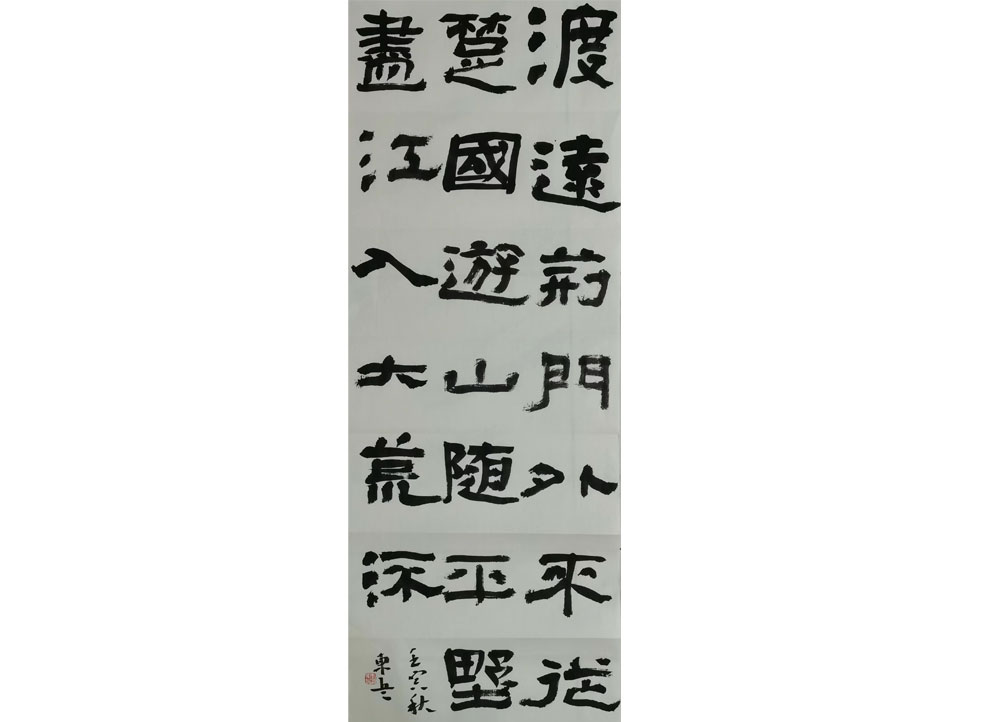 渡遠荊門外来從
楚國遊山随平墅
盡江入大荒流
壬寅秋
東